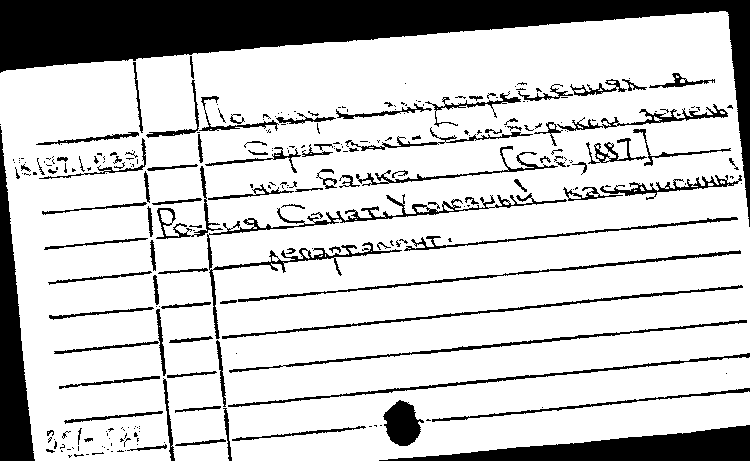 По делу о злоупотреблениях в
Саратовско-Симбирском земель-
18.197.1.239
ном банке. [Спб., 1887].
Россия. Сенат. Уголовный кассационный
департамент.